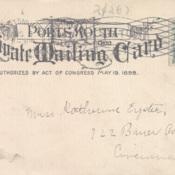 24267
PORTSMOUTH
OHIO
Private Mailing Card
AUTHORIZED BY ACT OF CONGRESS MAY 19, 1898.
Miss. Katherine
122
Cincinnati